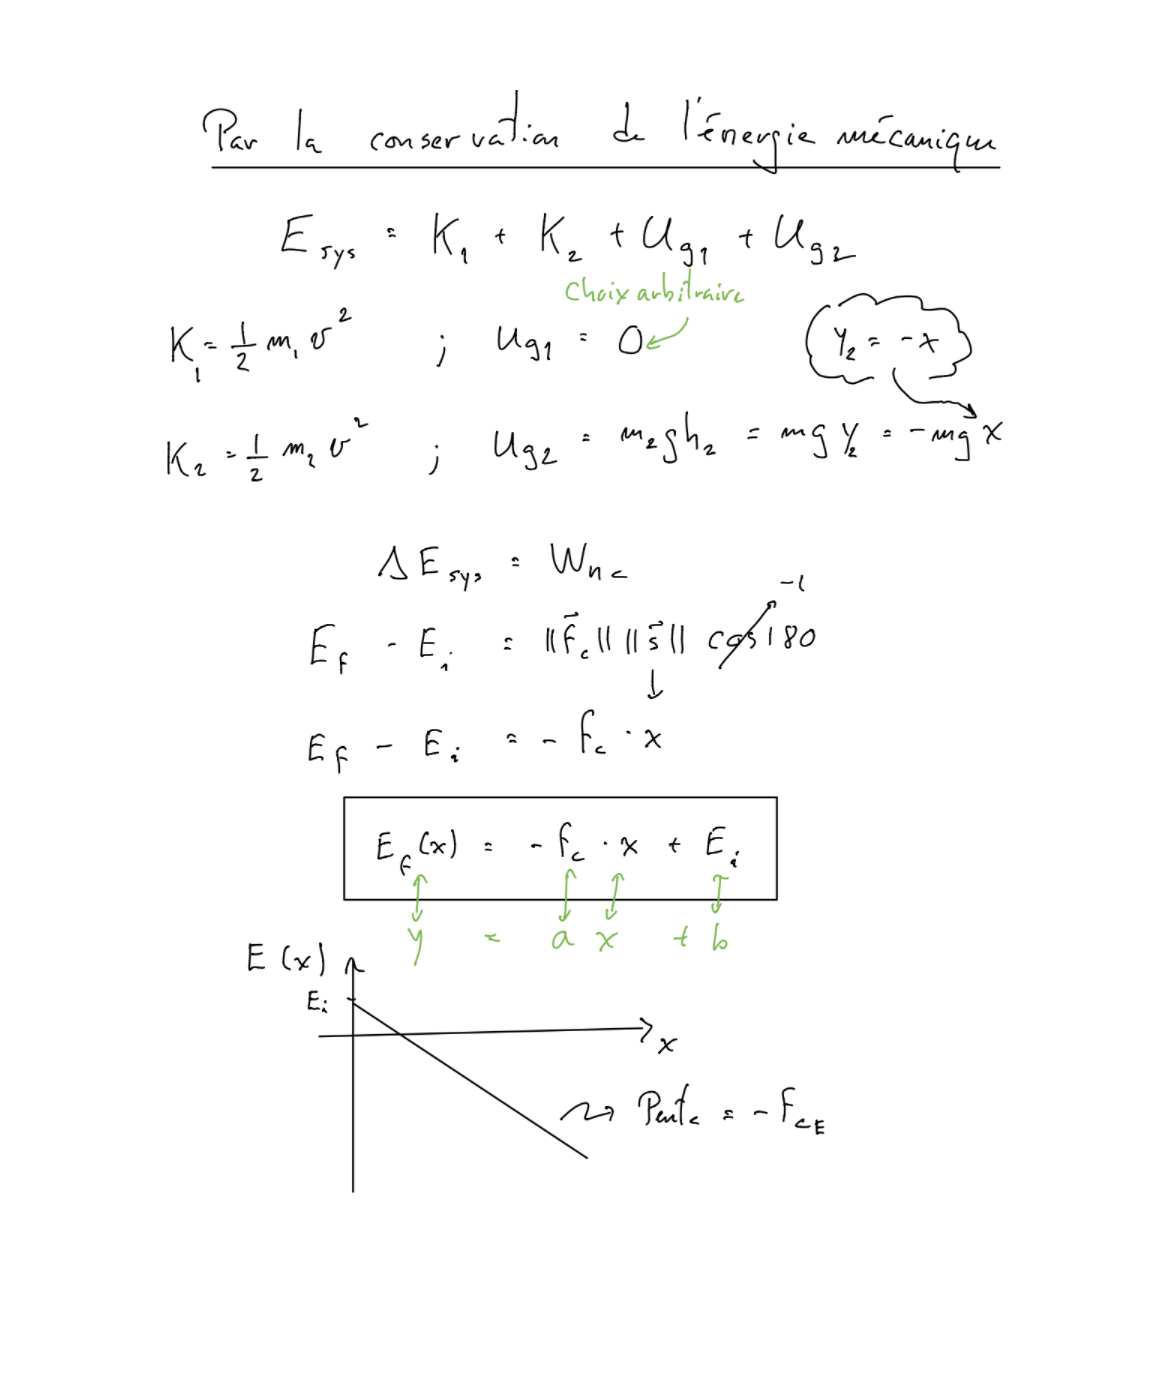 Par la conservation de l'énergie mécanique
E_sys = K_1 + K_2 + U_g1 + U_g2
Choix arbitraire
K_1 = 1/2 m_1 v^2 ; U_g1 = 0
y_2 = -x
K_2 = 1/2 m_2 v^2 ; U_g2 = m_2 g h_2 = m g y_2 = - m g x
ΔE_sys = W_nc
-1
E_f - E_i = ||f⃗_c|| ||s⃗|| cos 180
E_f - E_i = - f_c · x
E_f(x) = - f_c · x + E_i
y = a x + b
E(x)
E_i
x
Pente = - F_cE